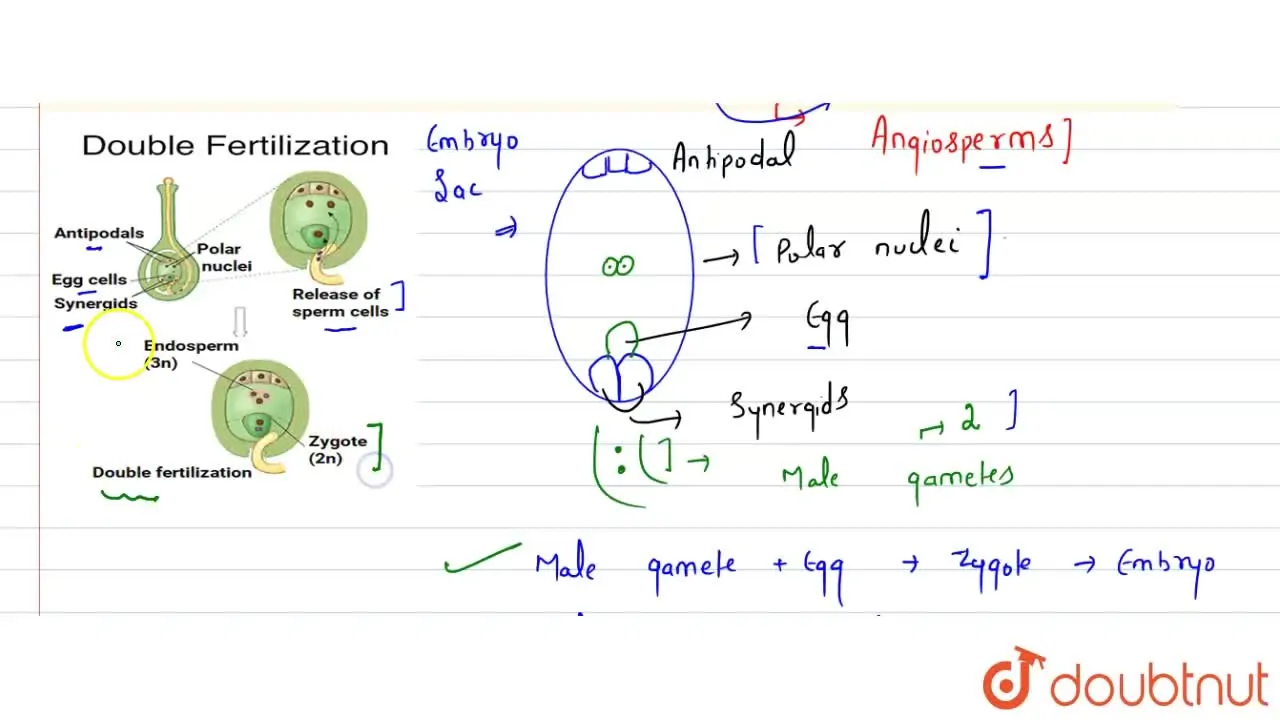 Double Fertilization
Antipodals
Polar
nuclei
Egg cells
Synergids
Release of
sperm cells
Endosperm
(3n)
Zygote
(2n)
Double fertilization
Embryo
Sac
Antipodal
Angiosperms]
[Polar nuclei]
Egg
Synergids
2]
Male gametes
Male gamete + Egg → Zygote → Embryo
doubtnut